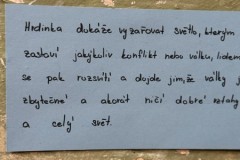 Hrdinka dokáže vyzařovat světlo, kterým
zastaví jakýkoliv konflikt nebo válku, lidem
se pak rozsvítí a dojde jim, že války jsou
zbytečné a akorát ničí dobré vztahy
a celý svět.